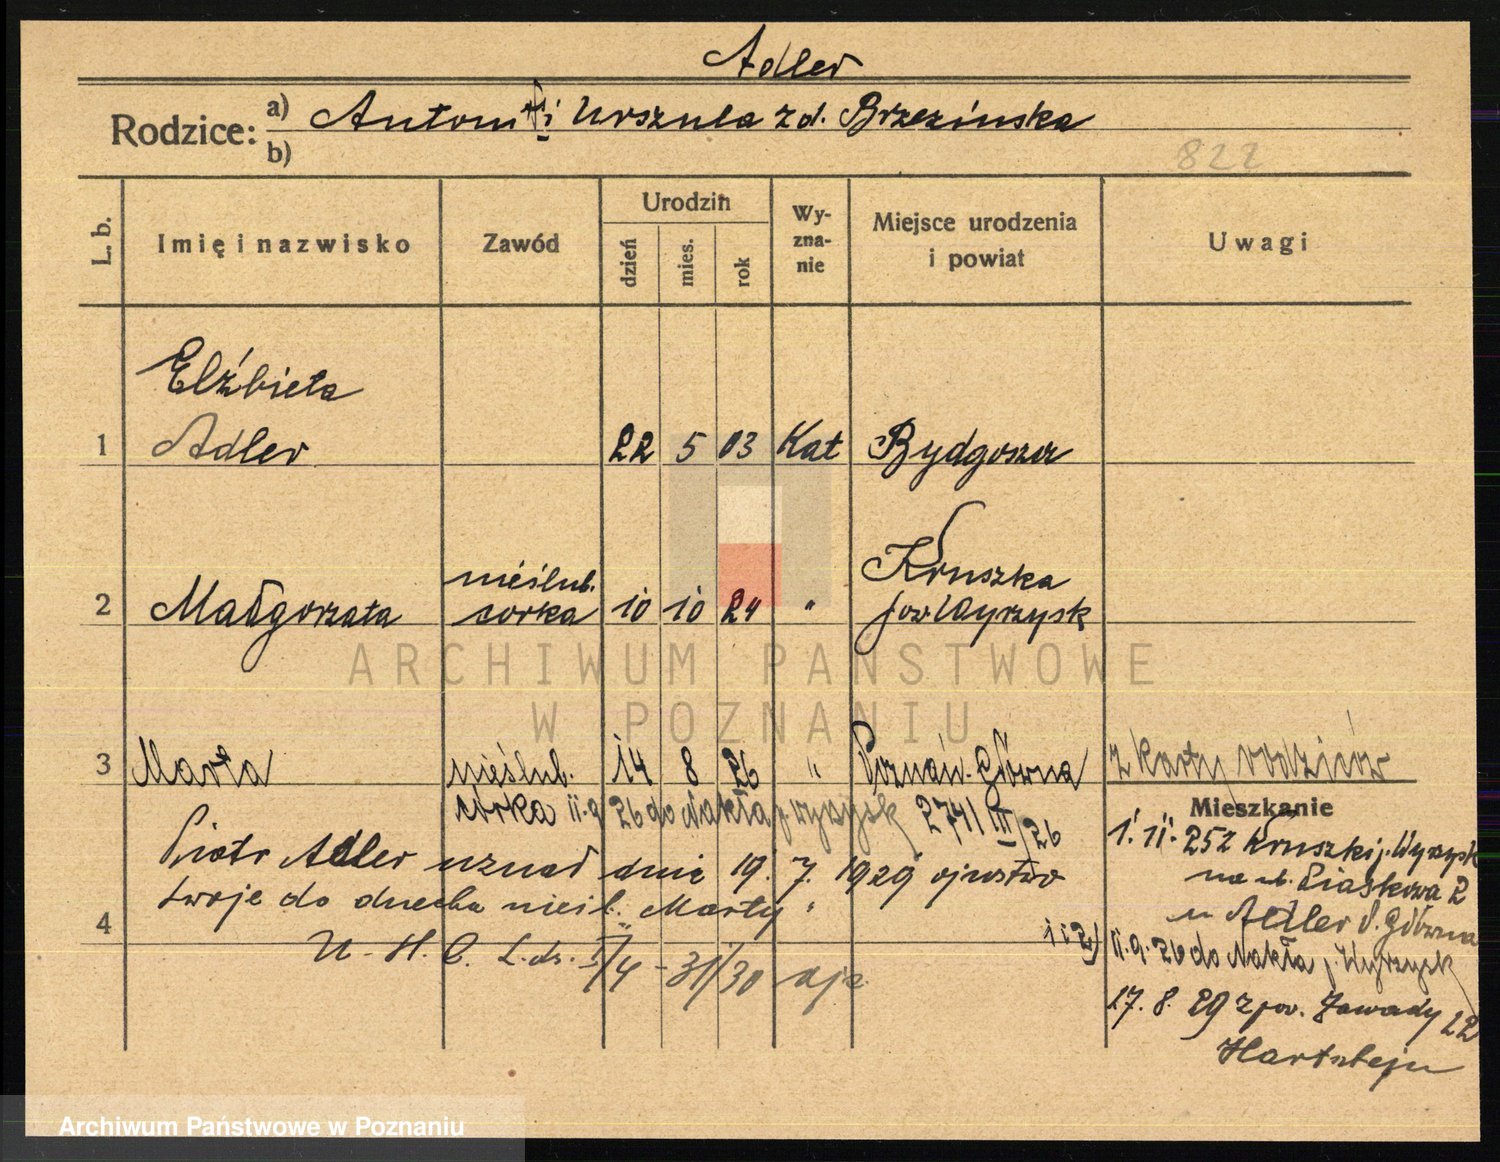 Adler
Rodzice: a) Antoni i Urszula zd. Brzezinska
b)
822
L. b.
Imię i nazwisko
Zawód
Urodzin
dzień
mies.
rok
Wy-
zna-
nie
Miejsce urodzenia
i powiat
Uwagi
Elżbieta
1 Adler 22 5 03 Kat Bydgoszcz
nieślub. Kruszka
2 Małgorzata corka 10 10 24 " pow Wyrzysk
ARCHIWUM PAŃSTWOWE
W POZNANIU
3 Marta nieślub. 14 8 26 " Poznań-Główna z karty rodziców
córka 11.9 26 do Nakła p. Wyrzysk 2741 III/26
Mieszkanie
Piotr Adler uznał dnia 19. 7. 1929 ojcostwo
swoje do dziecka nieśl. Marty.
4
U. H. C. L. dz. I/4 - 31/30
1. 11. 252 Kruszki p. Wyrzysk
na ul. Piaskowa 2
u Adler P. Główna
1 i 2) 11. 9. 26 do Nakła p. Wyrzysk
17. 8. 29 z pow. Zawady 22
Hartstejn
Archiwum Państwowe w Poznaniu